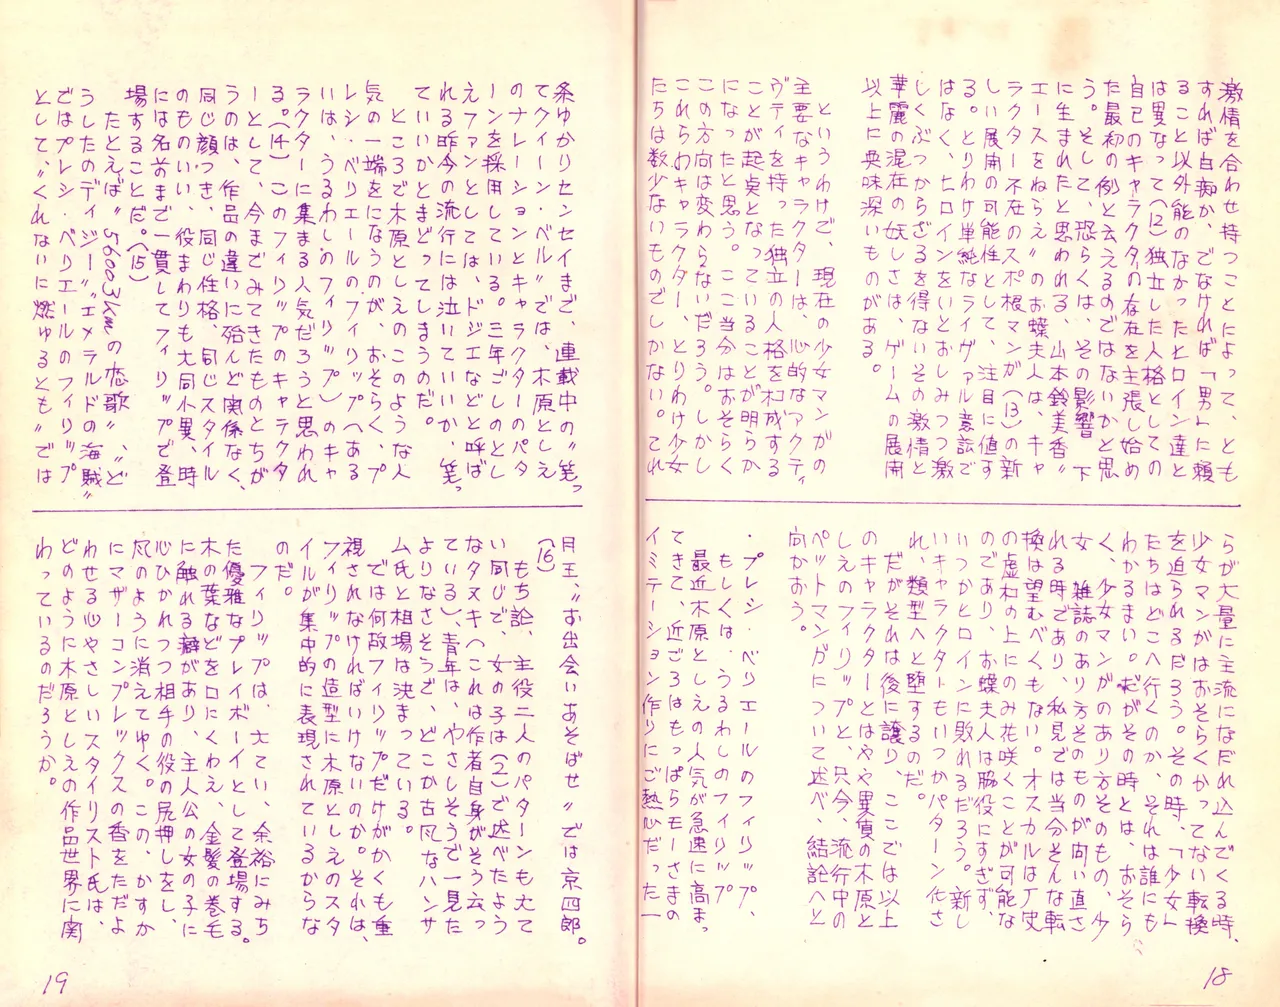 激情を合わせ持つことによって、とも
すれば白痴か、でなければ「男」に頼
ること以外能のなかったヒロイン達と
は異なって(12)独立した人格としての
自己のキャラクタの存在を主張し始め
た最初の例と云えるのではないかと思
う。そして、恐らくは、その影響下
に生まれたと思われる、山本鈴美香〝
エースをねらえ〟のお蝶夫人は、キャ
ラクター不在のスポ根マンが(13)の新
しい展開の可能性として、注目に値す
る。とりわけ単純なライヴァル意識で
はなく、ヒロインをいとおしみつつ激
しくぶつからざるを得ないその激情と
華麗の混在の妖しさは、ゲームの展開
以上に興味深いものがある。
というわけで、現在の少女マンガの
主要なキャラクターは、心的なアクティ
ヴティを持った独立の人格を構成する
ことが起点となっていることが明らか
になったと思う。ここ当分はおそらく
この方向は変わらないだろう。しかし
これらのキャラクター、とりわけ少女
たちは数少ないものでしかない。てれ
らが大量に主流になだれ込んでくる時、
少女マンがはおそらくかってない転換
を迫られるだろう。その時、「少女」
たちはどこへ行くのか、それは誰にも
わかるまい。だがその時とは、おそら
く、少女マンがのあり方そのもの、少
女雑誌のあり方そのものが向い直さ
れる時であり、私見では当分そんな転
換は望むべくもない。オスカルは厂史
の虚構の上にのみ花咲くことが可能な
のであり、お蝶夫人は脇役にすぎず、
いつかヒロインに敗れるだろう。新し
いキャラクターもいつかパターン化さ
れ、類型へと堕するのだ。
だがそれは後に譲り、ここでは以上
のキャラクターとはやや異質の木原と
しえのフィリップと、只今、流行中の
ペットマンガについて述べ、結論へと
向かおう。
・プレシ・ベリエールのフィリップ、
もしくは、うるわしのフィリップ
最近木原としえの人気が急速に高まっ
てきて、近ごろはもっぱらモーさまの
イミテーション作りにご熱心だった一
条ゆかりセンセイまで、連載中の〝笑っ
てクイーン・ベル〟では、木原としえ
のナレーションとキャラクターのパタ
ーンを採用している。三年ごしのとし
えファンとしては、ドジエなどと呼ば
れる昨今の流行には泣いていいか、笑っ
ていいかとまどってしまうのだ。
ところで木原としえのこのような人
気の一端をになうのが、おそらく、プ
レシ・ベリエールのフィリップ(ある
いは、うるわしのフィリップ)のキャ
ラクターに集まる人気だろうと思われ
る。(14) このフィリップのキャラクタ
ーとして、今までみてきたものとちが
うのは、作品の違いに殆んど関係なく、
同じ顔つき、同じ性格、同じスタイル
のものいい、役まわりも大同小異、時
には名前まで一貫してフィリップで登
場することだ。(15)
たとえば〝5600३kmの恋歌〟、〝ど
うしたのディジー〟〝エメラルドの海賊〟
ではプレシ・ベリエールのフィリップ
として、〝くれないに燃ゆるとも〟では
月王、〝お出会いあそばせ〟では京四郎。
(16)
もち論、主役二人のパターンも大て
い同じで、女の子は(2)で述べたよう
なタヌキ(これは作者自身がそう云っ
ている)、青年は、やさしそうで一見た
よりなさそうで、どこか古風なハンサ
ム氏と相場は決まっている。
では何故フィリップだけがかくも重
視されなければいけないのか。それは、
フィリップの造型に木原としえのスタ
イルが集中的に表現されているからな
のだ。
フィリップは、大てい、余裕にみち
た優雅なプレイボーイとして登場する。
木の葉などを口にくわえ、金髪の巻毛
に触れる癖があり、主人公の女の子に
心ひかれつつ相手の役の尻押しをし、
風のように消えてゆく。この、かすか
にマザーコンプレックスの香をただよ
わせる心やさしいスタイリスト氏は、
どのように木原としえの作品世界に関
わっているのだろうか。
18
19